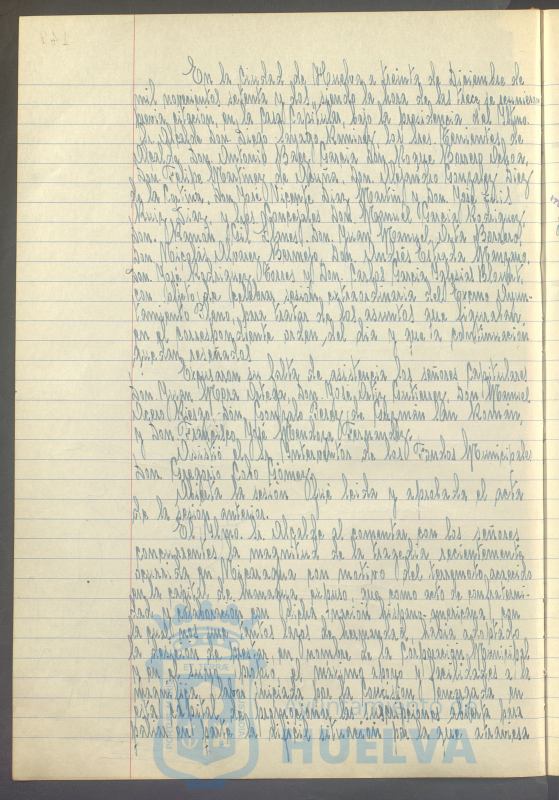 En la Ciudad de Huelva a treinta de Diciembre de
mil novecientos setenta y dos, siendo la hora de las trece se reunieron
previa citación, en la Casa Capitular, bajo la presidencia del Iltmo.
Sr. Alcalde Don Diego Sayago Ramírez, los Sres. Tenientes de
Alcalde Don Antonio Báñez García, Don Roque Borrero
Don Felipe Martínez de Acuña, Don Alejandro González Diez
de la Cortina, Don José Vicente Díaz Martín y Don José Luis
Ruiz Díaz, y los Concejales Don Manuel García Rodríguez,
Don Ramón Don Juan Manuel Orta Borrero,
Don Nicolás Alvarez Bermejo, Don Andrés Estrada Manzano,
Don José Rodríguez Torres y Don Carlos García Iglesias
con objeto de celebrar sesión extraordinaria del Excmo. Ayun-
tamiento Pleno, para tratar de los asuntos que figuraban
en el correspondiente orden del día y que a continuación
quedan reseñados.
Excusaron su falta de asistencia los señores capitulares
Don Juan Mora Don José Ortiz Gutierrez, Don Manuel
Otero Don Gonzalo Perez de Guzmán San Román,
y Don Francisco José Mendoza Fernandez.
Asistió el Sr. Interventor de los Fondos Municipales
Don Gregorio Cobo Gómez.
Abierta la sesión fué leida y aprobada el acta
de la sesión anterior.
El Iltmo. Sr. Alcalde al comentar con los señores
concurrentes la magnitud de la tragedia recientemente
ocurrida en Nicaragua con motivo del terremoto acaecido
en la capital de Managua, expuso, que como acto de confraterni-
dad y adhesión con dicha nación hispano-americana, con
la cual nos unen tantos lazos de hermandad, había adoptado
la decisión de prestar en nombre de la Corporación Municipal
y en el suyo propio, el máximo apoyo y facilidades a la
magnífica labor iniciada por la Comisión encargada en
esta capital de promocionar la suscripciones abierta para
paliar en parte la difícil situación por la que atraviesa
Ayuntamiento de
HUELVA